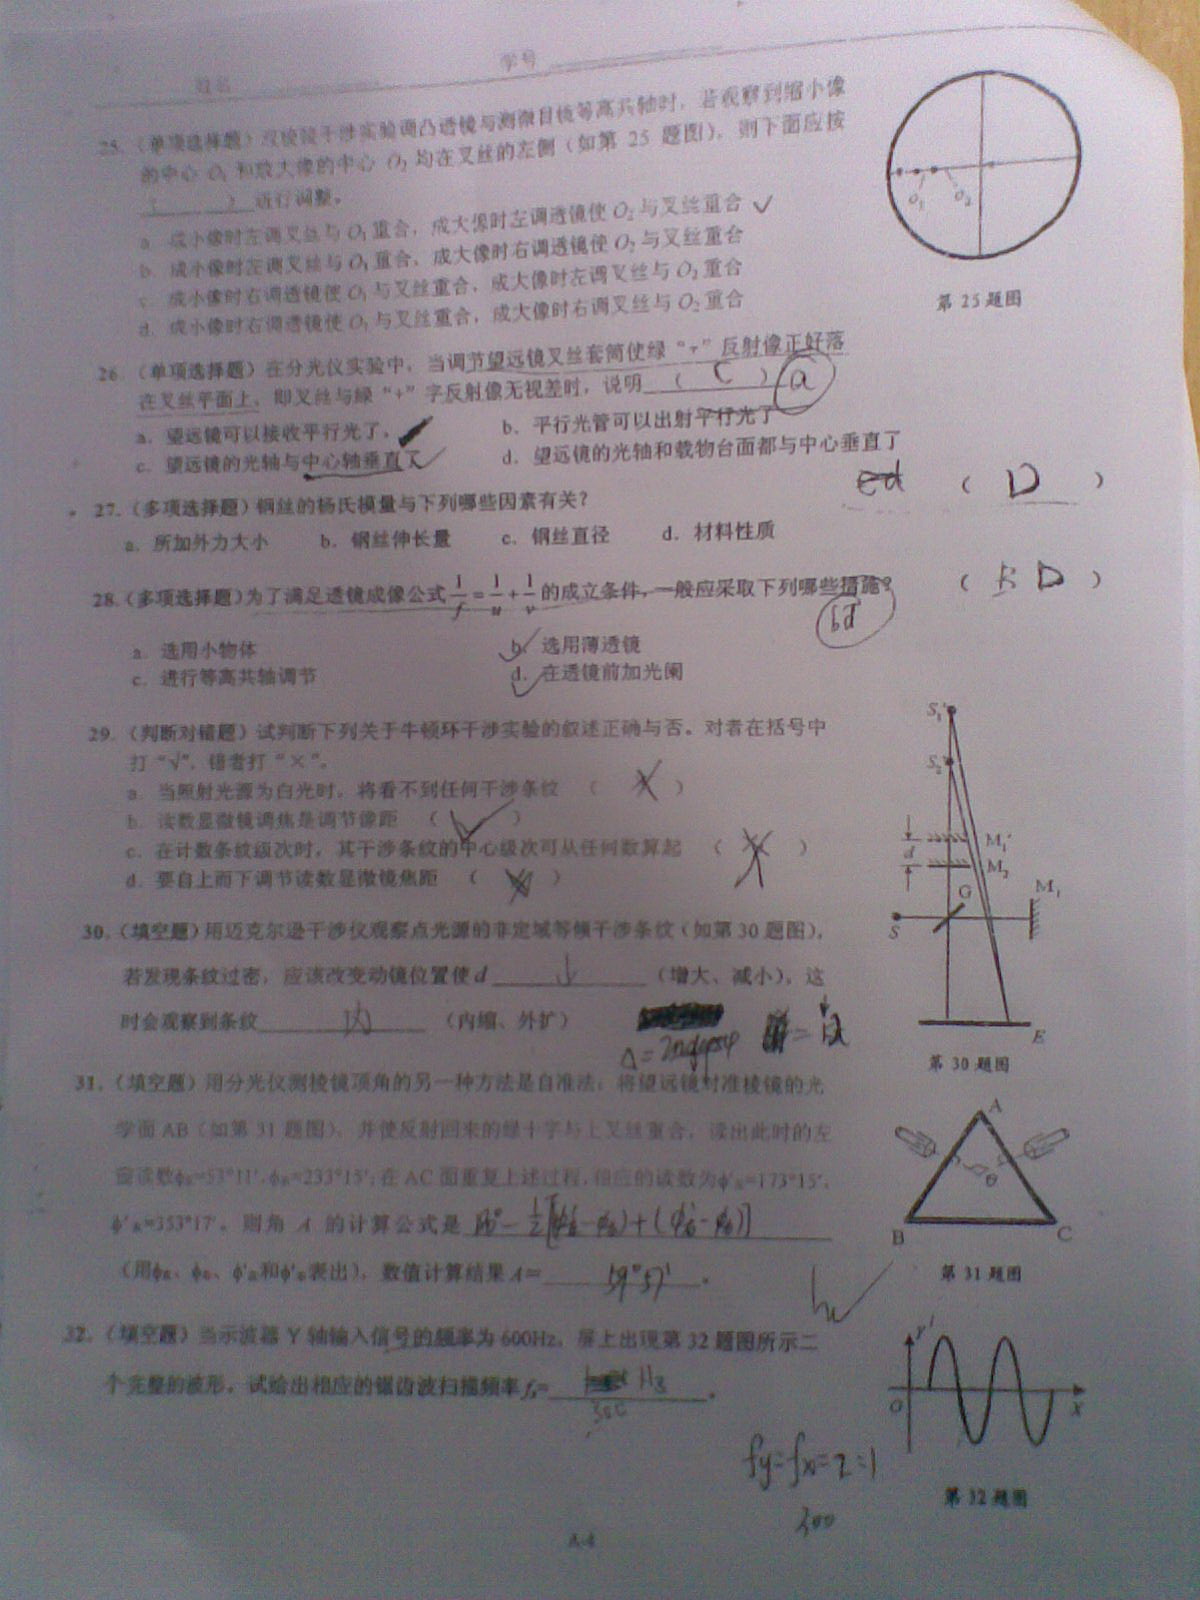 姓名 学号
25.（单项选择题）双棱镜干涉实验调凸透镜与测微目镜等高共轴时，若观察到缩小像
的中心 O₁ 和放大像的中心 O₂ 均在叉丝的左侧（如第 25 题图），则下面应按
（ ）进行调整。
a. 成小像时左调叉丝与O₁重合，成大像时左调透镜使O₂与叉丝重合 ✓
b. 成小像时左调叉丝与O₁重合，成大像时右调透镜使O₂与叉丝重合
c. 成小像时右调透镜使O₁与叉丝重合，成大像时左调叉丝与O₂重合
d. 成小像时右调透镜使O₁与叉丝重合，成大像时右调叉丝与O₂重合
O₁ O₂
第 25 题图
26.（单项选择题）在分光仪实验中，当调节望远镜叉丝套筒使绿“+”反射像正好落
在叉丝平面上，即叉丝与绿“+”字反射像无视差时，说明（ C ） a
a. 望远镜可以接收平行光了， b. 平行光管可以出射平行光了
c. 望远镜的光轴与中心轴垂直了 ✓ d. 望远镜的光轴和载物台面都与中心垂直了
27.（多项选择题）钢丝的杨氏模量与下列哪些因素有关？ cd （ D ）
a. 所加外力大小 b. 钢丝伸长量 c. 钢丝直径 d. 材料性质
28.（多项选择题）为了满足透镜成像公式 1/f = 1/u + 1/v 的成立条件，一般应采取下列哪些措施？ （ B D ）
bd
a. 选用小物体 b. 选用薄透镜
c. 进行等高共轴调节 d. 在透镜前加光阑
29.（判断对错题）试判断下列关于牛顿环干涉实验的叙述正确与否。对者在括号中
打“√”，错者打“×”。
a. 当照射光源为白光时，将看不到任何干涉条纹 （ × ）
b. 读数显微镜调焦是调节像距 （ ✓ ）
c. 在计数条纹级次时，其干涉条纹的中心级次可从任何数算起 （ × ）
d. 要自上而下调节读数显微镜焦距 （ × ）
30.（填空题）用迈克尔逊干涉仪观察点光源的非定域等倾干涉条纹（如第 30 题图），
若发现条纹过密，应该改变动镜位置使 d ↓ （增大、减小），这
时会观察到条纹 内 （内缩、外扩）
Δ=2ndcosφ
S₁' S₂' M₁' M₂ d G M₁ S E
第 30 题图
31.（填空题）用分光仪测棱镜顶角的另一种方法是自准法：将望远镜对准棱镜的光
学面 AB（如第 31 题图），并使反射回来的绿十字与上叉丝重合，读出此时的左
窗读数φ左=53°11′，φ右=233°15′；在 AC 面重复上述过程，相应的读数为φ′左=173°15′，
φ′右=353°17′，则角 A 的计算公式是 180°-½[(φ′左-φ左)+(φ′右-φ右)]
（用φ左、φ右、φ′左和φ′右表出），数值计算结果 A= 59°57′ 。
A B C θ
第 31 题图
32.（填空题）当示波器 Y 轴输入信号的频率为 600Hz，屏上出现第 32 题图所示二
个完整的波形，试给出相应的锯齿波扫描频率 fₓ= Hz 。
300
Y O X
fy=fx=2:1
300
第 32 题图
A-4